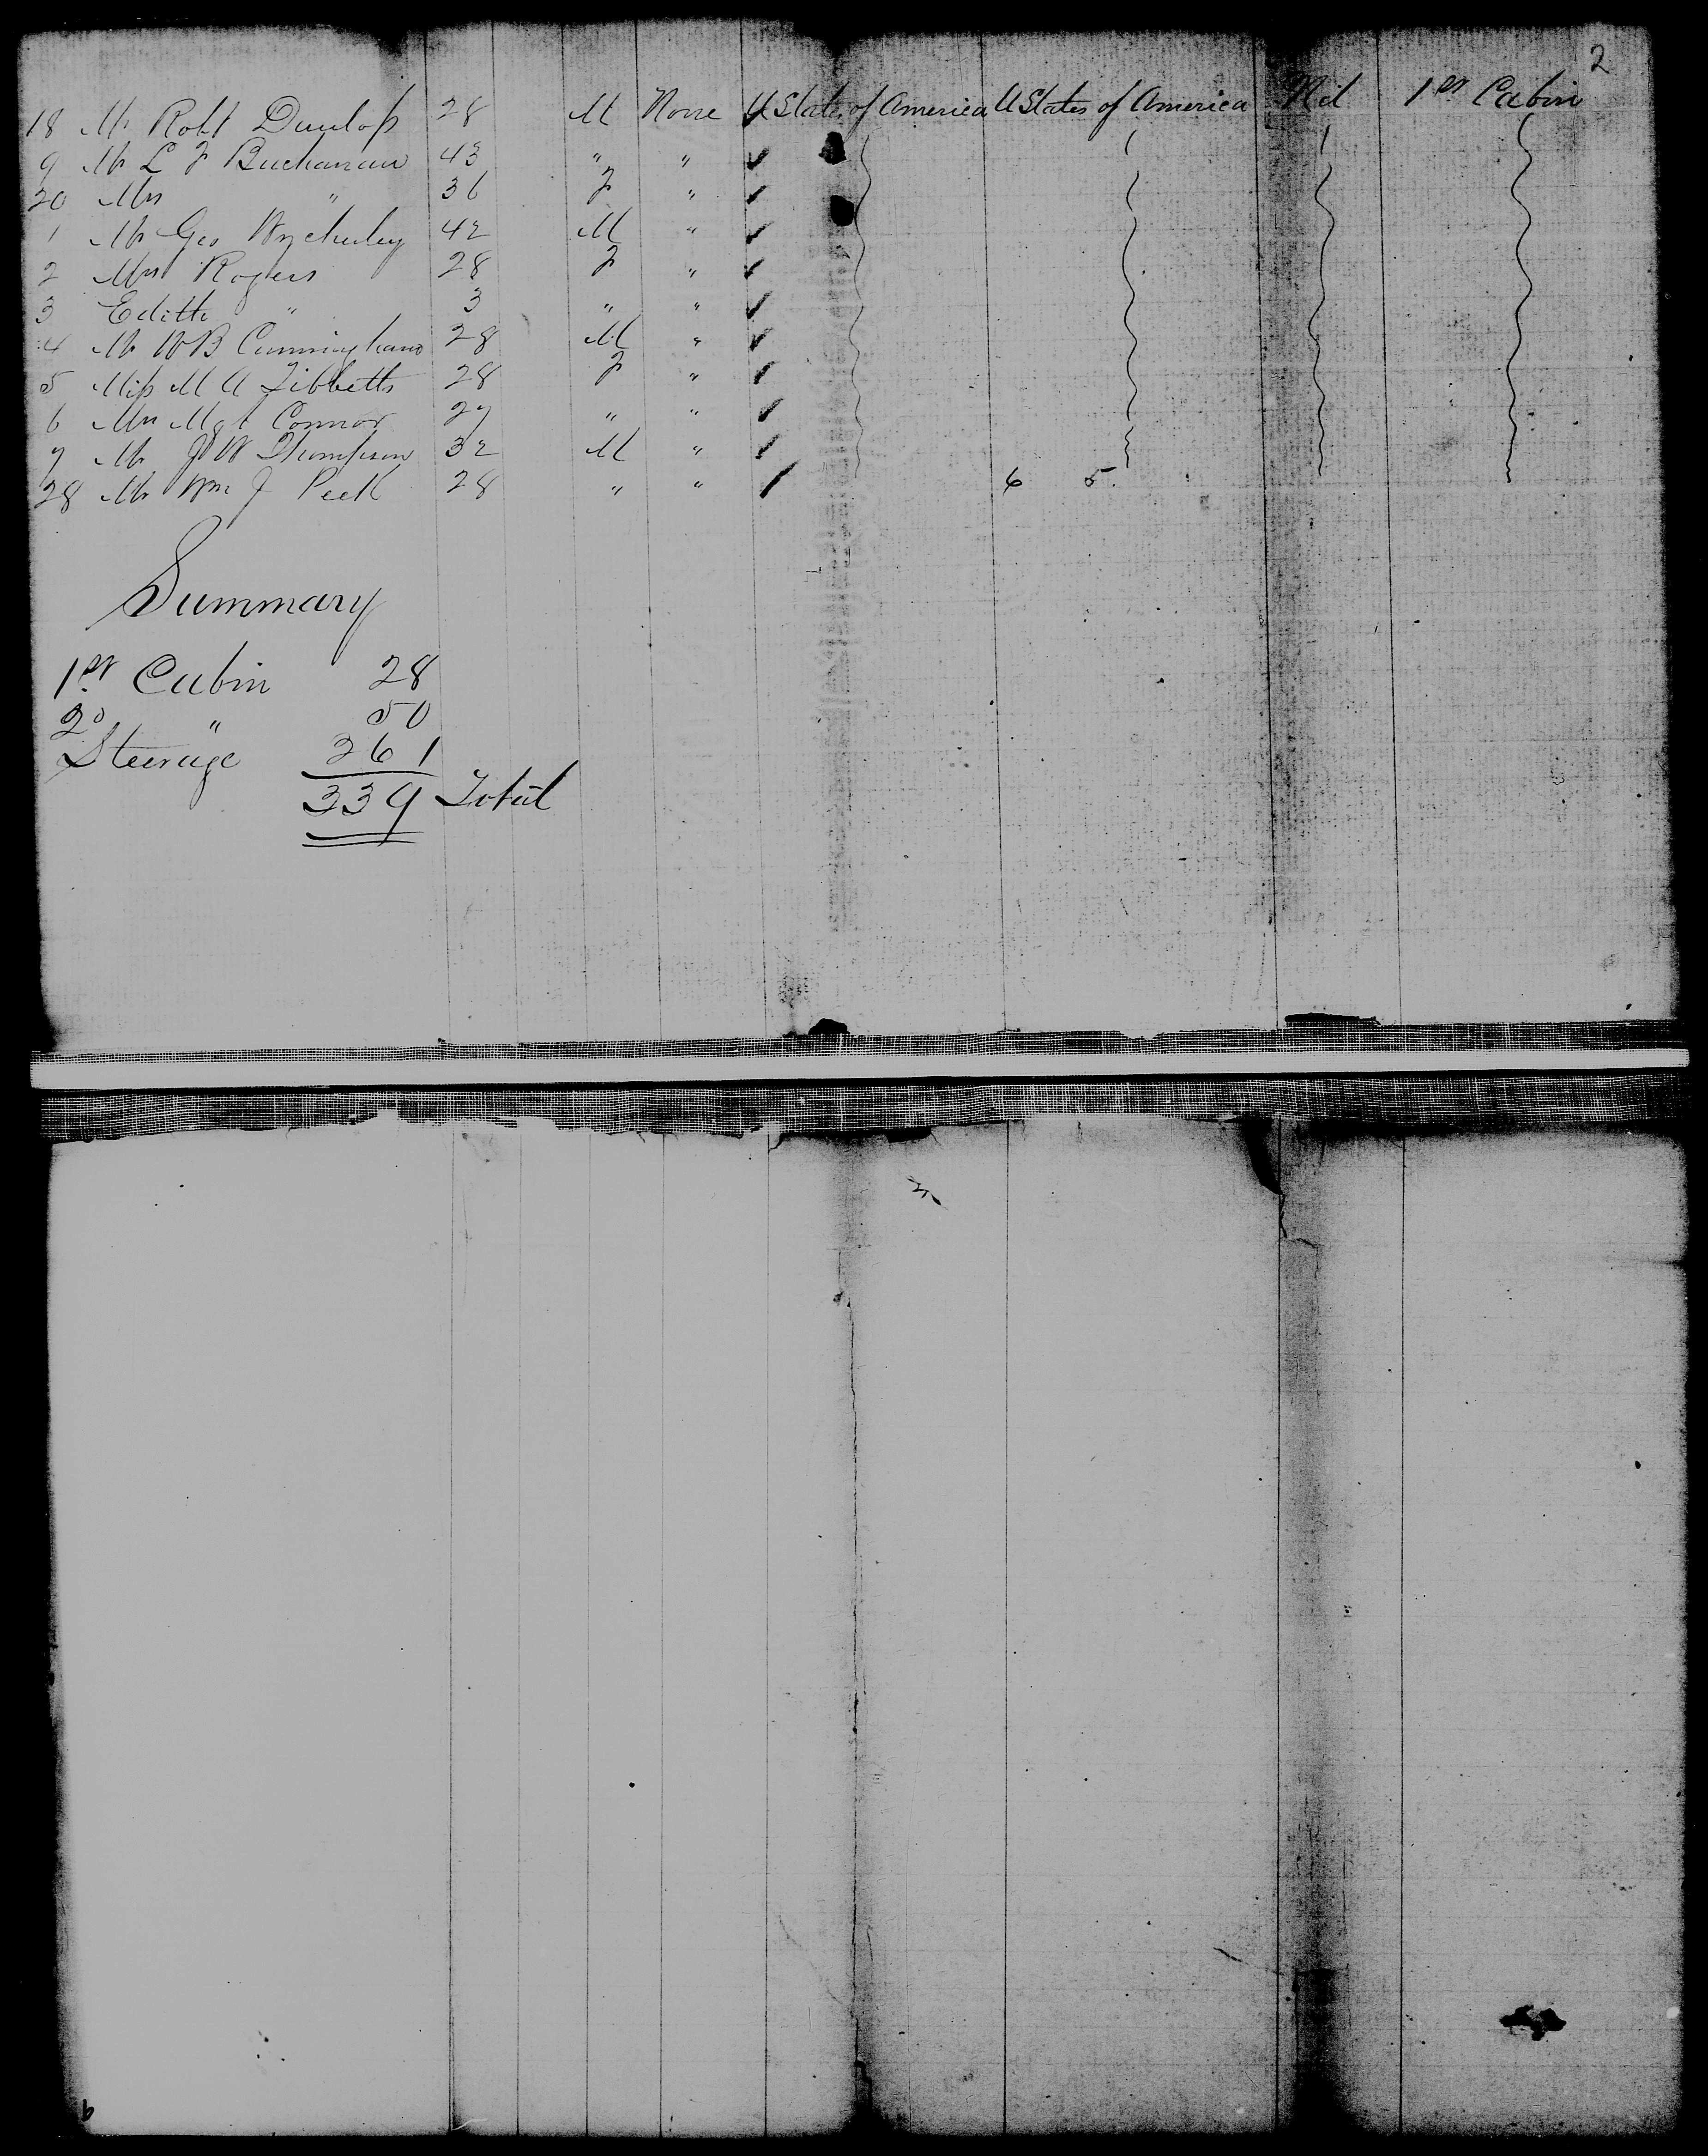 2
18 Mr Robt Dunlop 28 M None U States of America U States of America Nil 1st Cabin
9 Mr L F Buchanan 43 " "
20 Mrs " 36 F "
1 Mr Geo Wycherley 42 M "
2 Mrs Rogers 28 F "
3 Edith " 3 " "
4 Mr W B Cunningham 28 M "
5 Miss M A Tibbetts 28 F "
6 Mrs Mgt Connor 27 " "
7 Mr J W Thompson 32 M "
28 Mr Wm J Peell 28 " " 6 5.
Summary
1st Cabin 28
2d " 50
Steerage 261
339 Total